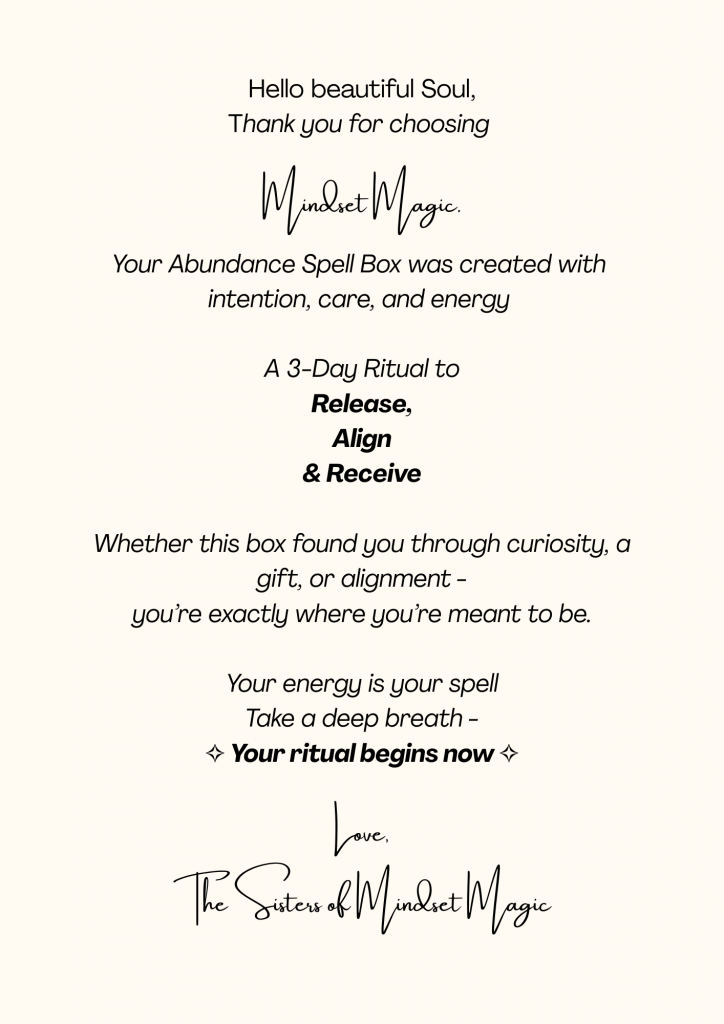 Hello beautiful Soul,
Thank you for choosing
Mindset Magic.
Your Abundance Spell Box was created with
intention, care, and energy
A 3-Day Ritual to
Release,
Align
& Receive
Whether this box found you through curiosity, a
gift, or alignment -
you’re exactly where you’re meant to be.
Your energy is your spell
Take a deep breath -
✧ Your ritual begins now ✧
Love,
The Sisters of Mindset Magic